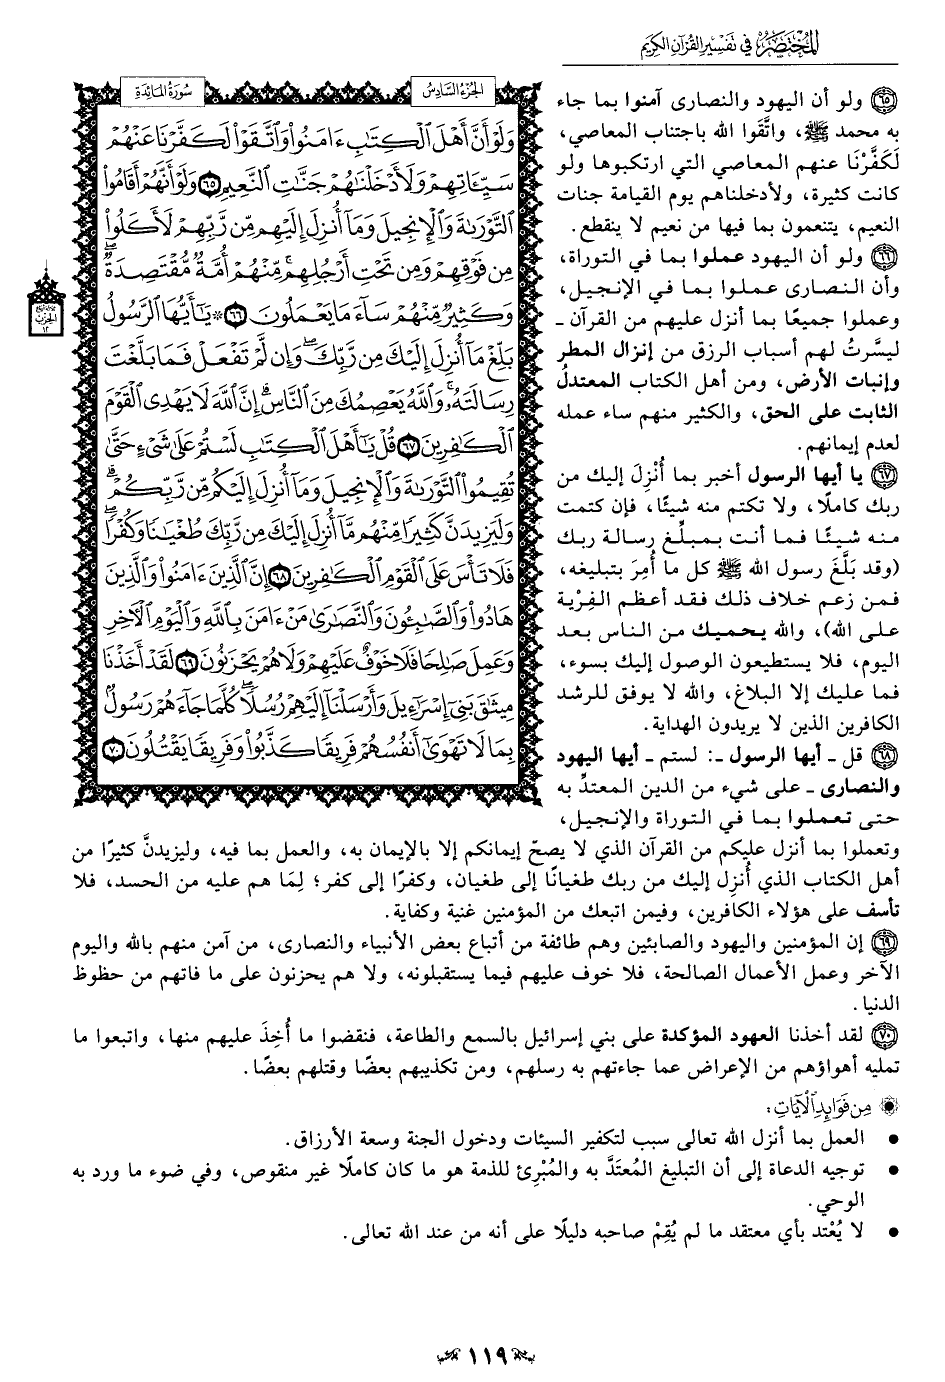 المختصر في تفسير القرآن الكريم
الجزء السادس
سورة المائدة
وَلَوْ أَنَّ أَهْلَ ٱلْكِتَٰبِ ءَامَنُوا۟ وَٱتَّقَوْا۟ لَكَفَّرْنَا عَنْهُمْ
سَيِّـَٔاتِهِمْ وَلَأَدْخَلْنَٰهُمْ جَنَّٰتِ ٱلنَّعِيمِ ٦٥ وَلَوْ أَنَّهُمْ أَقَامُوا۟
ٱلتَّوْرَىٰةَ وَٱلْإِنجِيلَ وَمَآ أُنزِلَ إِلَيْهِم مِّن رَّبِّهِمْ لَأَكَلُوا۟
مِن فَوْقِهِمْ وَمِن تَحْتِ أَرْجُلِهِم ۚ مِّنْهُمْ أُمَّةٌ مُّقْتَصِدَةٌ ۖ
وَكَثِيرٌ مِّنْهُمْ سَآءَ مَا يَعْمَلُونَ ٦٦ ۞ يَٰٓأَيُّهَا ٱلرَّسُولُ
بَلِّغْ مَآ أُنزِلَ إِلَيْكَ مِن رَّبِّكَ ۖ وَإِن لَّمْ تَفْعَلْ فَمَا بَلَّغْتَ
رِسَالَتَهُۥ ۚ وَٱللَّهُ يَعْصِمُكَ مِنَ ٱلنَّاسِ ۗ إِنَّ ٱللَّهَ لَا يَهْدِى ٱلْقَوْمَ
ٱلْكَٰفِرِينَ ٦٧ قُلْ يَٰٓأَهْلَ ٱلْكِتَٰبِ لَسْتُمْ عَلَىٰ شَىْءٍ حَتَّىٰ
تُقِيمُوا۟ ٱلتَّوْرَىٰةَ وَٱلْإِنجِيلَ وَمَآ أُنزِلَ إِلَيْكُم مِّن رَّبِّكُمْ ۗ
وَلَيَزِيدَنَّ كَثِيرًا مِّنْهُم مَّآ أُنزِلَ إِلَيْكَ مِن رَّبِّكَ طُغْيَٰنًا وَكُفْرًا ۖ
فَلَا تَأْسَ عَلَى ٱلْقَوْمِ ٱلْكَٰفِرِينَ ٦٨ إِنَّ ٱلَّذِينَ ءَامَنُوا۟ وَٱلَّذِينَ
هَادُوا۟ وَٱلصَّٰبِـُٔونَ وَٱلنَّصَٰرَىٰ مَنْ ءَامَنَ بِٱللَّهِ وَٱلْيَوْمِ ٱلْءَاخِرِ
وَعَمِلَ صَٰلِحًا فَلَا خَوْفٌ عَلَيْهِمْ وَلَا هُمْ يَحْزَنُونَ ٦٩ لَقَدْ أَخَذْنَا
مِيثَٰقَ بَنِىٓ إِسْرَٰٓءِيلَ وَأَرْسَلْنَآ إِلَيْهِمْ رُسُلًا ۖ كُلَّمَا جَآءَهُمْ رَسُولٌۢ
بِمَا لَا تَهْوَىٰٓ أَنفُسُهُمْ فَرِيقًا كَذَّبُوا۟ وَفَرِيقًا يَقْتُلُونَ ٧٠
الحزب
١٢
٦٥ ولو أن اليهود والنصارى آمنوا بما جاء
به محمد ﷺ، واتَّقَوا الله باجتناب المعاصي،
لَكَفَّرْنَا عنهم المعاصي التي ارتكبوها ولو
كانت كثيرة، ولأدخلناهم يوم القيامة جنات
النعيم، يتنعمون بما فيها من نعيم لا ينقطع.
٦٦ ولو أن اليهود عملوا بما في التوراة،
وأن النصارى عملوا بما في الإنجيل،
وعملوا جميعًا بما أنزل عليهم من القرآن ـ
ليسَّرتُ لهم أسباب الرزق من إنزال المطر
وإنبات الأرض، ومن أهل الكتاب المعتدلُ
الثابت على الحق، والكثير منهم ساء عمله
لعدم إيمانهم.
٦٧ يا أيها الرسول أخبر بما أُنْزِلَ إليك من
ربك كاملًا، ولا تكتم منه شيئًا، فإن كتمت
منه شيئًا فما أنت بمبلِّغ رسالة ربك
(وقد بَلَّغَ رسول الله ﷺ كل ما أُمِرَ بتبليغه،
فمن زعم خلاف ذلك فقد أعظم الفِرْية
على الله)، والله يحميك من الناس بعد
اليوم، فلا يستطيعون الوصول إليك بسوء،
فما عليك إلا البلاغ، والله لا يوفق للرشد
الكافرين الذين لا يريدون الهداية.
٦٨ قل ـ أيها الرسول ـ: لستم ـ أيها اليهود
والنصارى ـ على شيء من الدين المعتدِّ به
حتى تعملوا بما في التوراة والإنجيل،
وتعملوا بما أنزل عليكم من القرآن الذي لا يصحّ إيمانكم إلا بالإيمان به، والعمل بما فيه، وليزيدنَّ كثيرًا من
أهل الكتاب الذي أُنزِل إليك من ربك طغيانًا إلى طغيان، وكفرًا إلى كفر؛ لِمَا هم عليه من الحسد، فلا
تأسف على هؤلاء الكافرين، وفيمن اتبعك من المؤمنين غنية وكفاية.
٦٩ إن المؤمنين واليهود والصابئين وهم طائفة من أتباع بعض الأنبياء والنصارى، من آمن منهم بالله واليوم
الآخر وعمل الأعمال الصالحة، فلا خوف عليهم فيما يستقبلونه، ولا هم يحزنون على ما فاتهم من حظوظ
الدنيا.
٧٠ لقد أخذنا العهود المؤكدة على بني إسرائيل بالسمع والطاعة، فنقضوا ما أُخِذَ عليهم منها، واتبعوا ما
تمليه أهواؤهم من الإعراض عما جاءتهم به رسلهم، ومن تكذيبهم بعضًا وقتلهم بعضًا.
من فوائد الآيات:
• العمل بما أنزل الله تعالى سبب لتكفير السيئات ودخول الجنة وسعة الأرزاق.
• توجيه الدعاة إلى أن التبليغ المُعتَدَّ به والمُبْرِئ للذمة هو ما كان كاملًا غير منقوص، وفي ضوء ما ورد به
الوحي.
• لا يُعْتد بأي معتقد ما لم يُقِمْ صاحبه دليلًا على أنه من عند الله تعالى.
١١٩